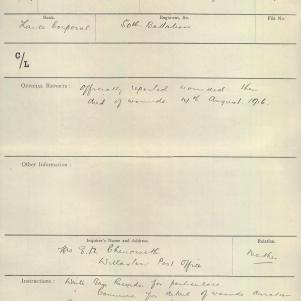 Rank. Regiment, &c. File No.
Lance Corporal 50th Battalion
C/L
OFFICIAL REPORTS: Officially reported wounded then
died of wounds 4th August. 1916.
Other Information:
Inquirer's Name and Address. Relation.
Mrs E. A. Chenoweth Mother
Willaston Post Office
Instructions: Write Base Records for particulars
for detail of wounds duration